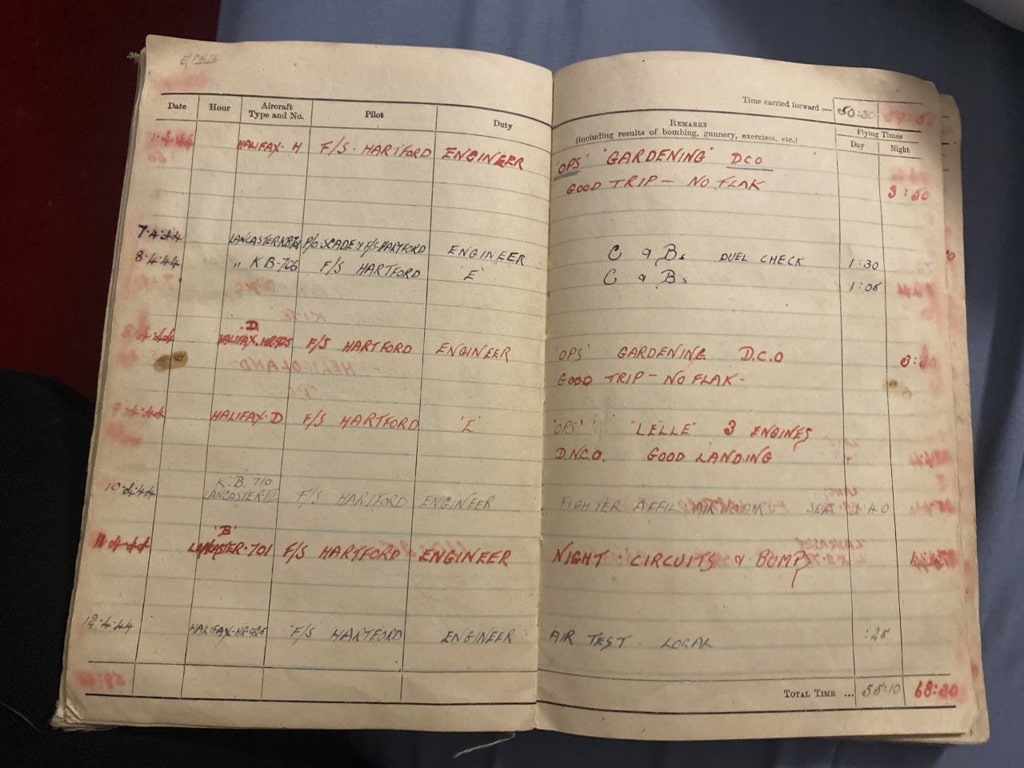 Time carried forward:— 50:30
Date Hour Aircraft Type and No. Pilot Duty REMARKS (including results of bombing, gunnery, exercises, etc.) Flying Times Day Night
HALIFAX-H F/S. HARTFORD ENGINEER 'OPS' "GARDENING" DCO
GOOD TRIP — NO FLAK 3:50
7.4.44 LANCASTER F/S HARTFORD ENGINEER C & Bs DUEL CHECK 1:30
8.4.44 " KB-706 F/S HARTFORD 'E' C & Bs 1:05
D.
HALIFAX F/S HARTFORD ENGINEER 'OPS' GARDENING D.C.O
GOOD TRIP — NO FLAK.
9.4.44 HALIFAX-D F/S HARTFORD 'E' 'OPS' 'LELLE' 3 ENGINES
D.N.C.O. GOOD LANDING
K.B. 710
10.4.44 LANCASTER F/S HARTFORD ENGINEER FIGHTER AFFIL 1:40
'B'
LANCASTER-701 F/S HARTFORD ENGINEER NIGHT CIRCUITS & BUMPS
4.44 HALIFAX F/S HARTFORD ENGINEER AIR TEST. LOCAL :25
TOTAL TIME ... 55:10 68:30